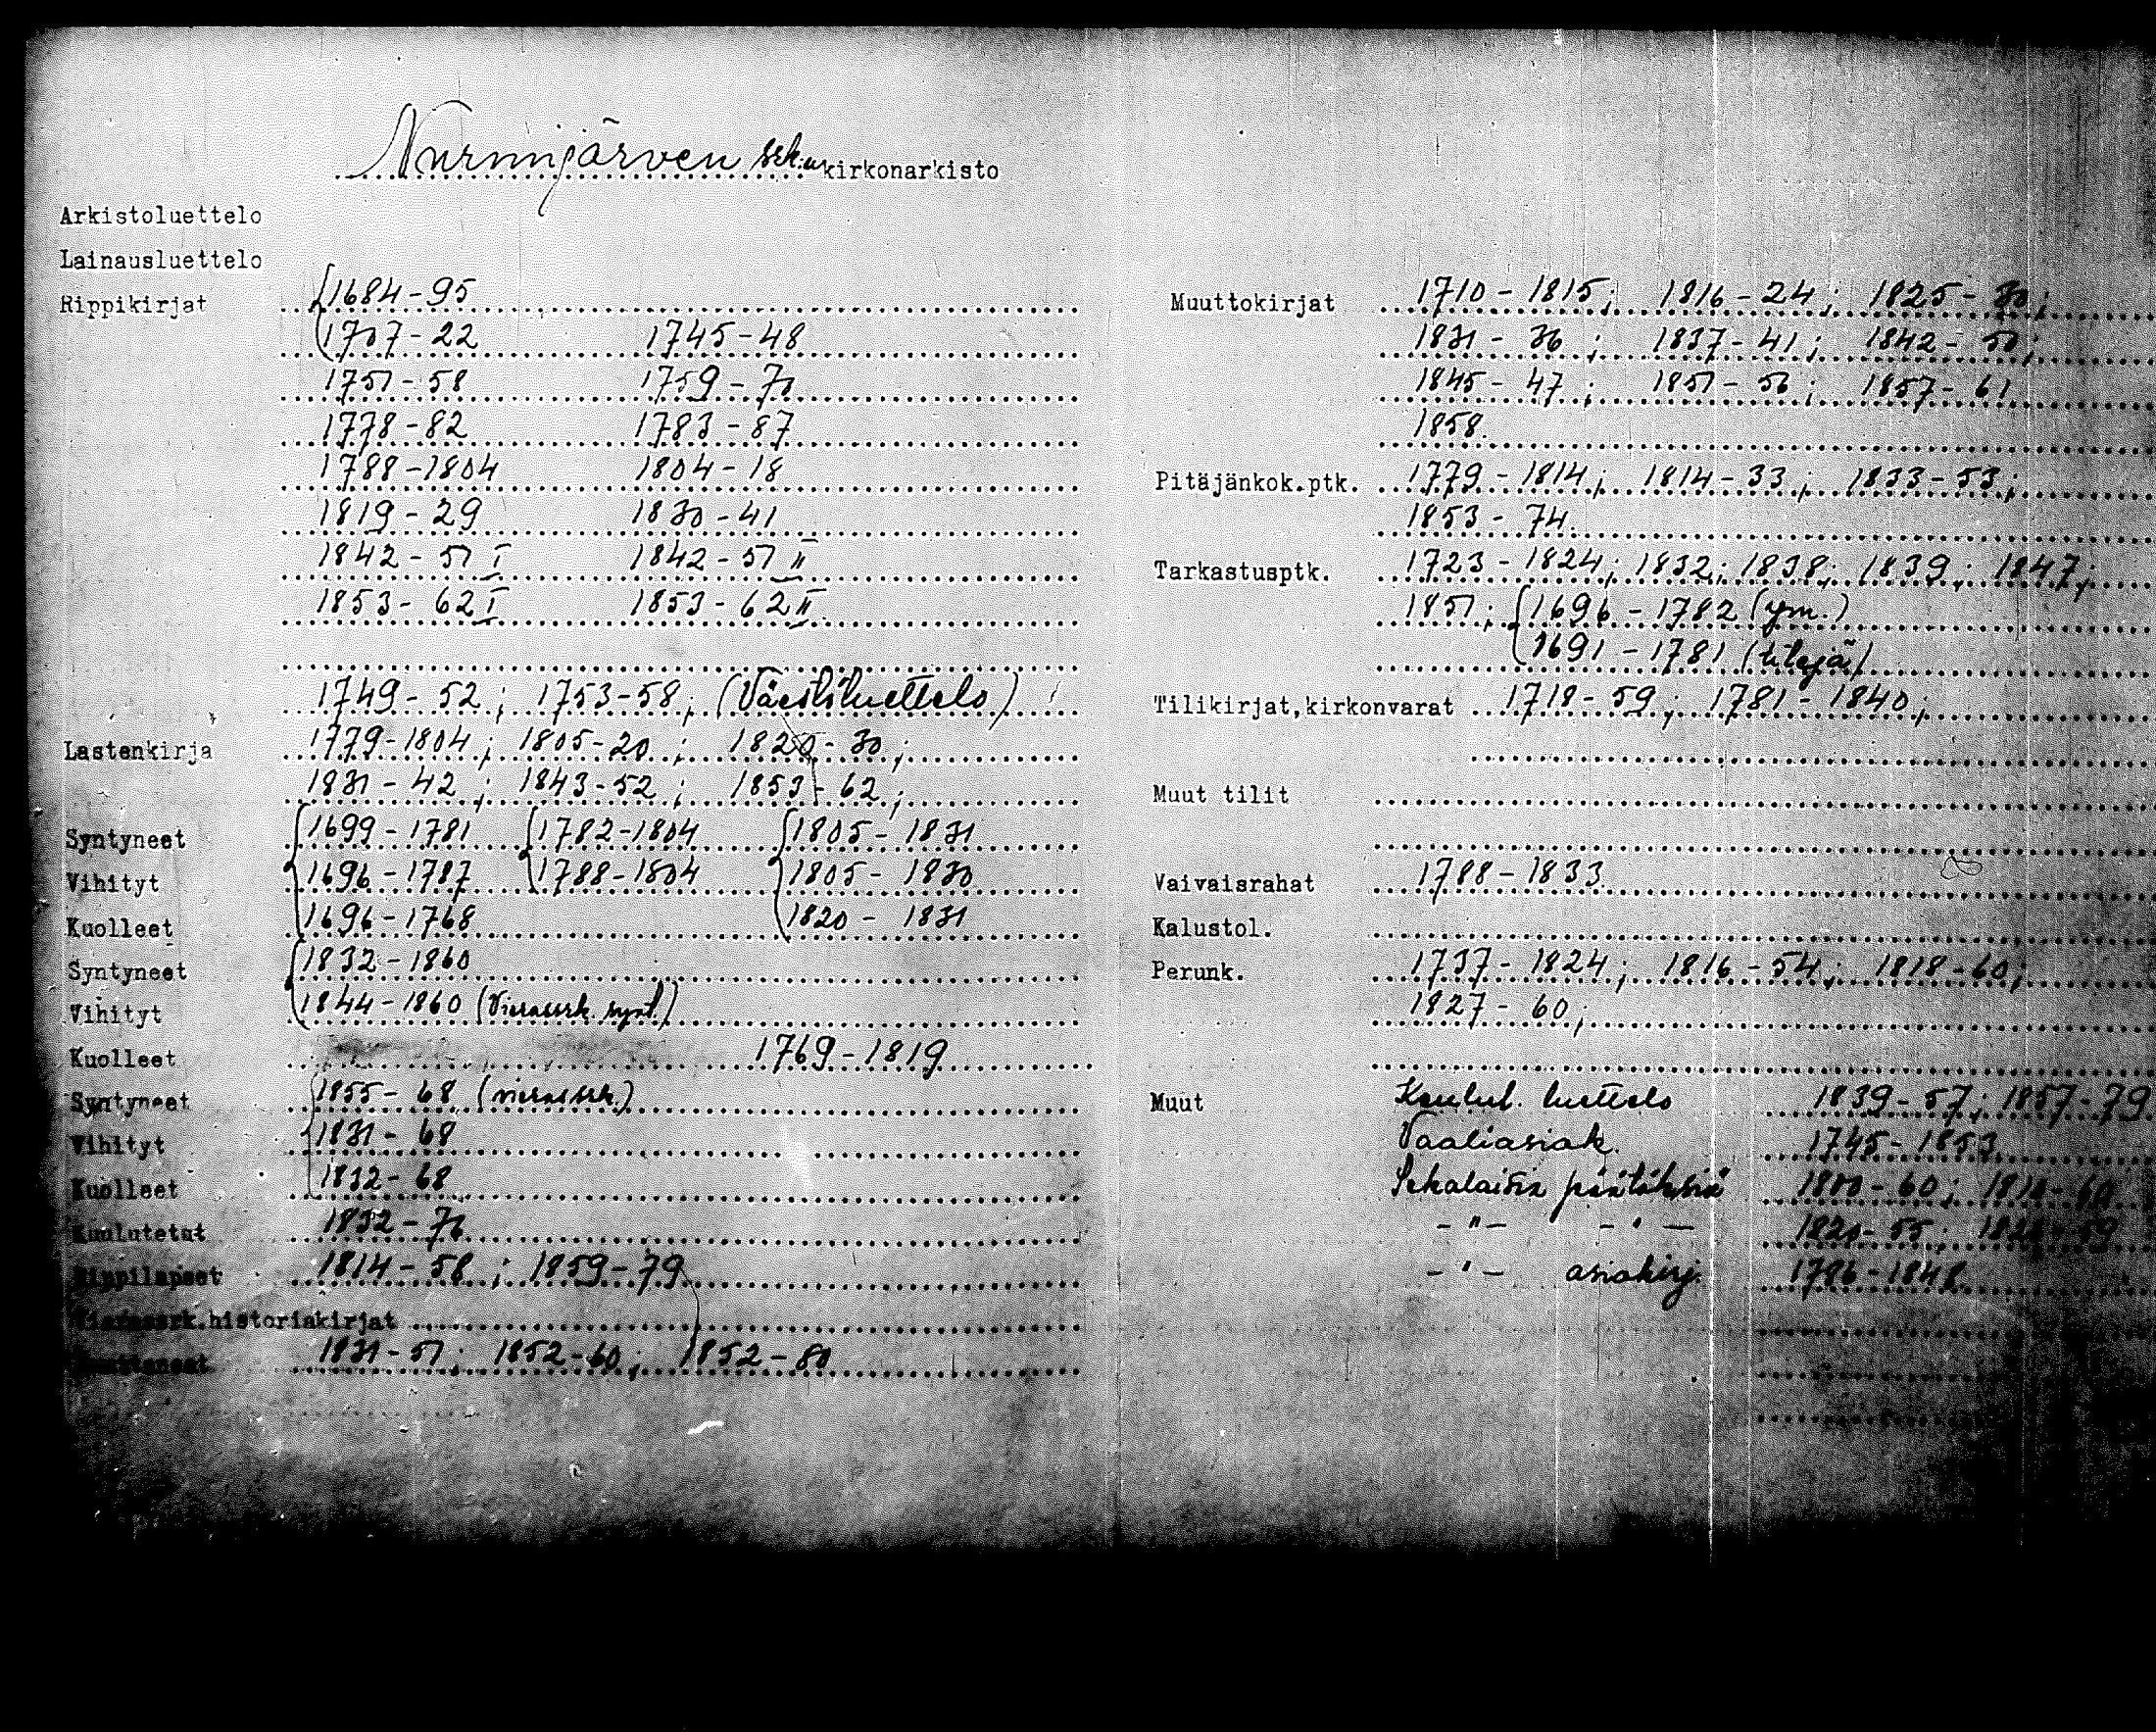 Nurmijärven srk:n kirkonarkisto
Arkistoluettelo
Lainausluettelo
Rippikirjat 1684-95
1707-22 1745-48
1751-58 1759-70
1778-82 1783-87
1788-1804 1804-18
1819-29 1830-41
1842-51 I 1842-51 II
1853-62 I 1853-62 II
1749-52; 1753-58; (Väestöluettelo)
Lastenkirja 1779-1804; 1805-20; 1820-30;
1831-42; 1843-52; 1853-62;
Syntyneet 1699-1781 1782-1804 1805-1831
Vihityt 1696-1787 1788-1804 1805-1830
Kuolleet 1696-1768 1820-1831
Syntyneet 1832-1860
Vihityt 1844-1860 (Vierassrk. synt.)
Kuolleet 1769-1819
Syntyneet 1855-68 (vierassrk.)
Vihityt 1831-68
Kuolleet 1832-68
Kuulutetut
Rippilapset 1814-58; 1859-79
historiakirjat
1831-51; 1852-60; 1852-80
Muuttokirjat 1710-1815; 1816-24; 1825-30;
1831-36; 1837-41; 1842-50;
1845-47; 1851-56; 1857-61
1858.
Pitäjänkok.ptk. 1779-1814; 1814-33; 1833-53;
1853-74.
Tarkastusptk. 1723-1824; 1832; 1838; 1839; 1847;
1851; 1696-1782 (ym.)
1691-1781
Tilikirjat,kirkonvarat 1718-59; 1781-1840;
Muut tilit
Vaivaisrahat 1788-1833
Kalustol.
Perunk. 1737-1824; 1816-54; 1818-60;
1827-60;
Muut Kuulut. luettelo 1839-57; 1857-79
Vaaliasiak. 1745-1853
Sekalaisia päätöksiä 1800-60;
-"- -"- 1820-55;
-"- asiakirj. 1786-1848